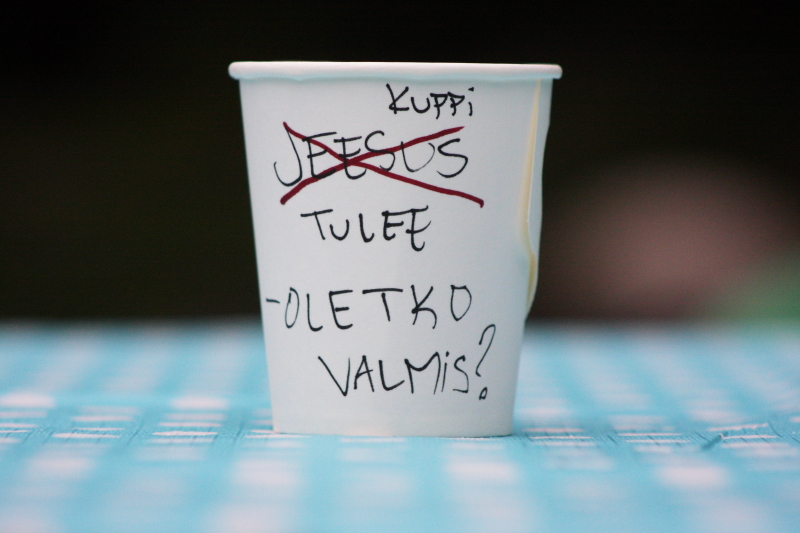 KUPPi
JEESUS
TULEE
-OLETKO
VALMiS?